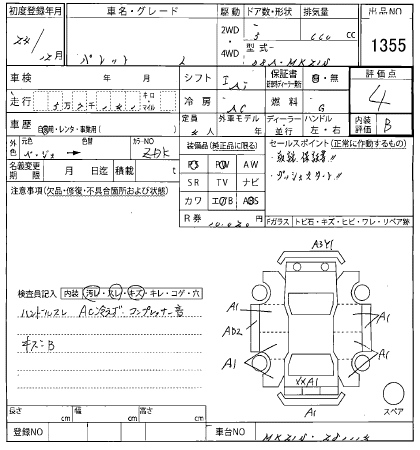 初度登録年月 車名・グレード 駆動 ドア数・形状 排気量 出品NO
24/12月 パレット L 2WD・4WD 5 660 cc 1355
型式ー DBA-MK21S
車検 年 月 シフト IAT 保証書 有・無 評価点
走行 km・マイル 冷房 AC 燃料 G 4
車歴 自家用・レンタ・事業用( ) 定員 4人 外車モデル 年 ディーラー 並行 ハンドル 左・右 内装評価 B
外色 元色 ベージュ 色替 カラーNO ZDK
装備品(純正品に限る) セールスポイント(正常に作動するもの)
名義変更期限 月 日迄 積載 t
PS PW AW
・取説、保証書!!
注意事項(欠品・修復・不具合箇所および状態)
SR TV ナビ
・プッシュスタート!!
カワ エアB ABS
R券 10.020
Fガラス トビ石・キズ・ヒビ・ワレ・リペア跡
A3Y1
検査員記入 内装 汚レ・スレ・キズ・キレ・コゲ・穴
A1
ハンドルスレ AC冷えず、コンプレッサー音
AD2
A1
キズ=B
A1
A1
XXA1
A1
スペア
長さ cm 幅 cm 高さ cm
登録NO 車台NO MK21S-